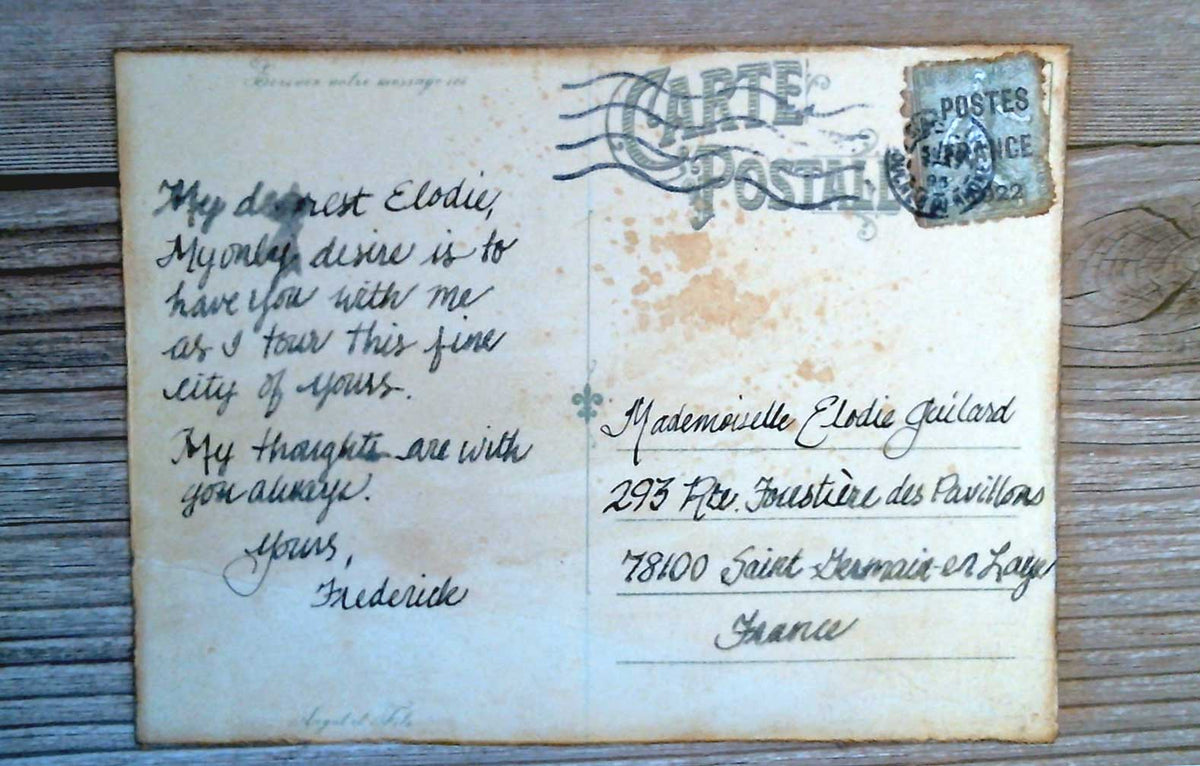 Ecrivez votre message ici
CARTE
POSTALE
POSTES
FRANCE
My dearest Elodie,
My only desire is to
have you with me
as I tour this fine
city of yours.
My thoughts are with
you always.
Yours,
Frederick
Mademoiselle Elodie Guilard
293 Rte. Forestière des Pavillons
78100 Saint Germain en Laye
France